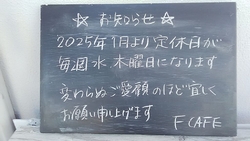 ☆ お知らせ ☆
2025年1月より定休日が
毎週水 木曜日になります
変わらぬご愛顧のほど宜しく
お願い申し上げます
F CAFE